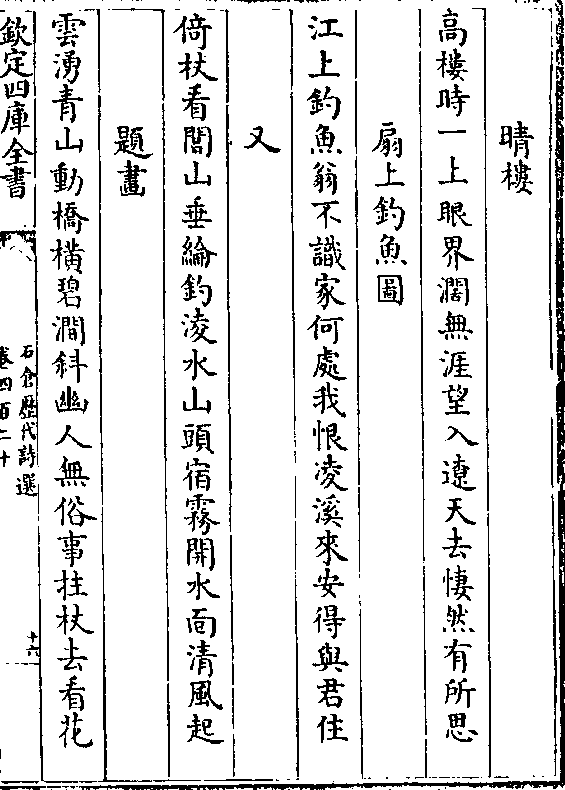 晴樓
高樓時一上眼界濶無涯望入遼天去悽然有所思
扇上釣魚圖
江上釣魚翁不識家何處我恨凌溪來安得與君住
又
倚杖看閭山垂綸釣淩水山頭宿霧開水面清風起
題畫
雲湧青山動橋橫碧澗斜幽人無俗事拄杖去看花
欽定四庫全書
石倉歷代詩選
卷四百二十
十六